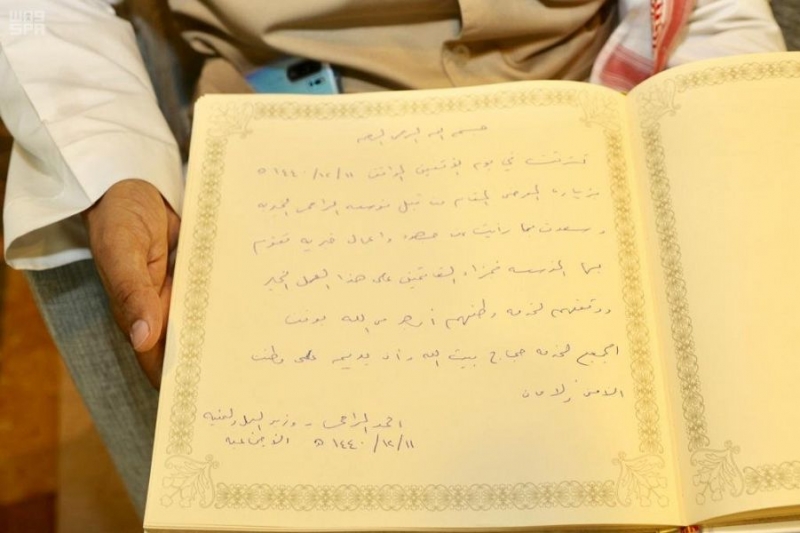 واس
SPA
بسم الله الرحمن الرحيم
تشرفت في يوم الموافق ١٤٤٠/١٢/١١ هـ
بزيارة المعرض المقام من قبل مؤسسة الراجحي الخيرية
وسعدت بما رأيت من جهود وأعمال خيرية تقوم
بها المؤسسة فجزاء القائمين على هذا العمل الخير
ووفقهم لخدمة وطنهم أرجو من الله يوفقنا
الجميع لخدمة حجاج بيت الله وأن يديم على وطننا
الأمن والأمان
احمد الراجحي - وزير العمل والتنمية
الاجتماعية ١٤٤٠/١٢/١١ هـ